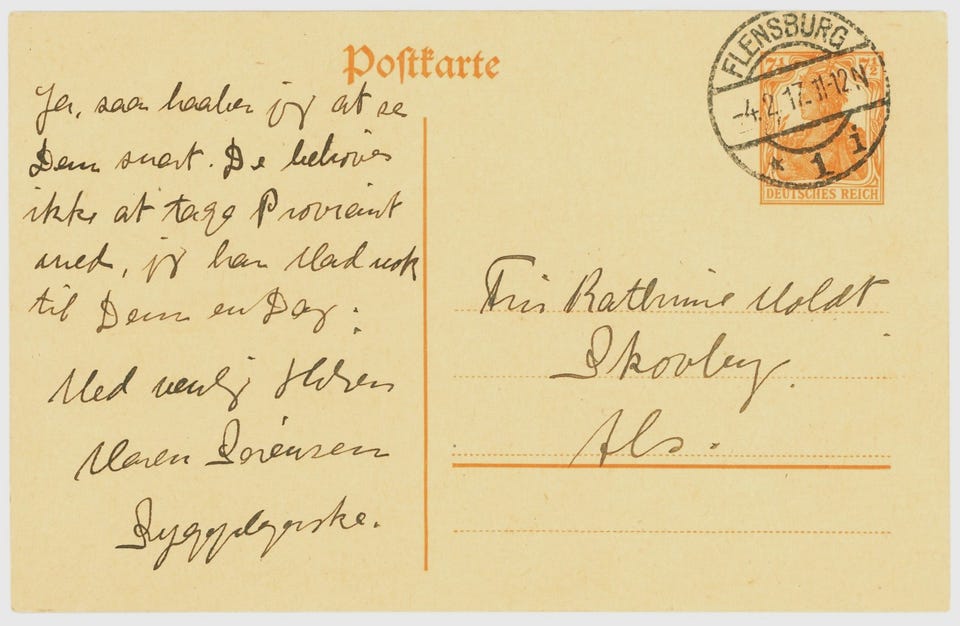 Postkarte
FLENSBURG
-4.2.17.11-12N
* 1 i
7½ 7½
DEUTSCHES REICH
Ja, saa haaber jeg at se
Dem snart. De behøver
ikke at tage Proviant
med, jeg har Mad nok
til Dem en Dag.
Med venlig Hilsen
Maren Sørensen
Sygeplejerske.
Frü Kathrine Moldt
Skovby.
Als.